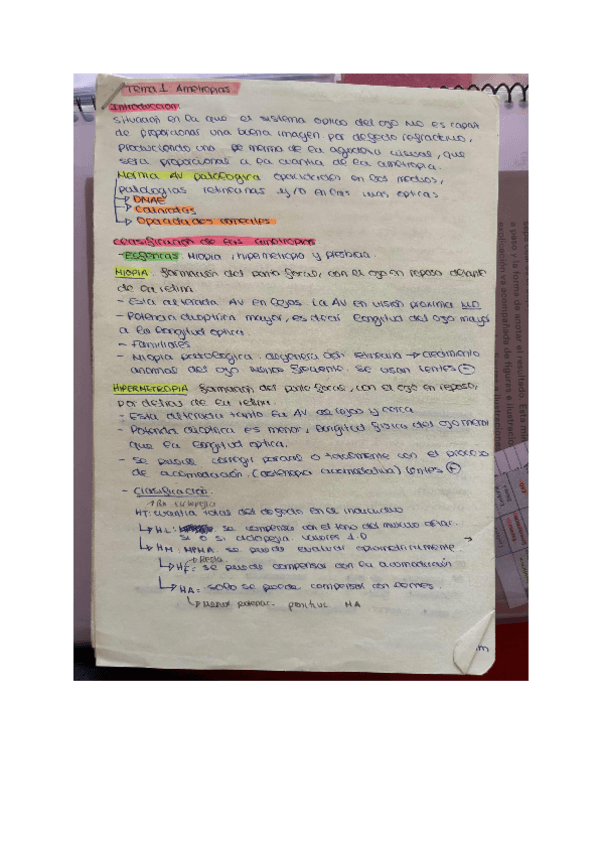 Tema 1: Ametropias
Introducción:
Situación en la que el sistema optico del ojo NO es capaz
de proporcionar una buena imagen por defecto refractivo,
produciendo una merma de la agudeza visual, que
sera proporcional a la cuantia de la ametropia.
Merma AV patologica opacidades en los medios,
patologias retinianas y/o en las vias opticas
DMAE
Cataratas
Operados corneales
Clasificación de las ametropias
- Esfericas: Miopia, hipermetropia y presbicia.
MIOPIA: formación del punto focal, con el ojo en reposo delante
de la retina
- Esta alterada AV en lejos. La AV en visión proxima NO
- Potencia dioptrica mayor, es decir longitud del ojo mayor
a la longitud optica.
- Familiares
- Miopia patologica: degenera retiniana → crecimiento
anomalo del menos frecuente. se usan lentes ⊖
HIPERMETROPIA: formación del punto focal, con el ojo en reposo,
por detras de la retina.
- Esta alterada tanto la AV de lejos y cerca
- Potencia dioptrica es menor, longitud fisica del ojo menor
que la longitud optica.
- Se puede corregir parcial o totalmente con el proceso
de acomodación. (astenopia acomodativa) lentes ⊕
- Clasificación:
HT: cuantia total del defecto en el individuo
HL: se compensa con el tono del musculo ciliar.
si o si cicloplegia. valores 1 D
HM: se puede evaluar optometricamente
HF: se puede compensar con la acomodación
HA: solo se puede compensar con lentes.
Menor positiva MA